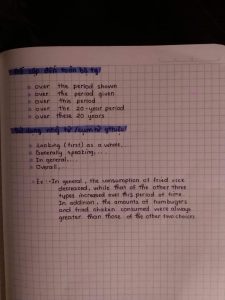 Đề cập đến toàn bộ
over the period shown
over the period given
over this period
over the 20-year period
over these 20 years
Sử dụng
Looking (first) as a whole,...
Generally speaking,...
In general,...
Overall,...
Ex: In general, the consumption of fried rice
decreased, while that of the other three
types increased over this period of time.
In addition, the amounts of hamburgers
and fried chicken consumed were always
greater than those of the other two choices